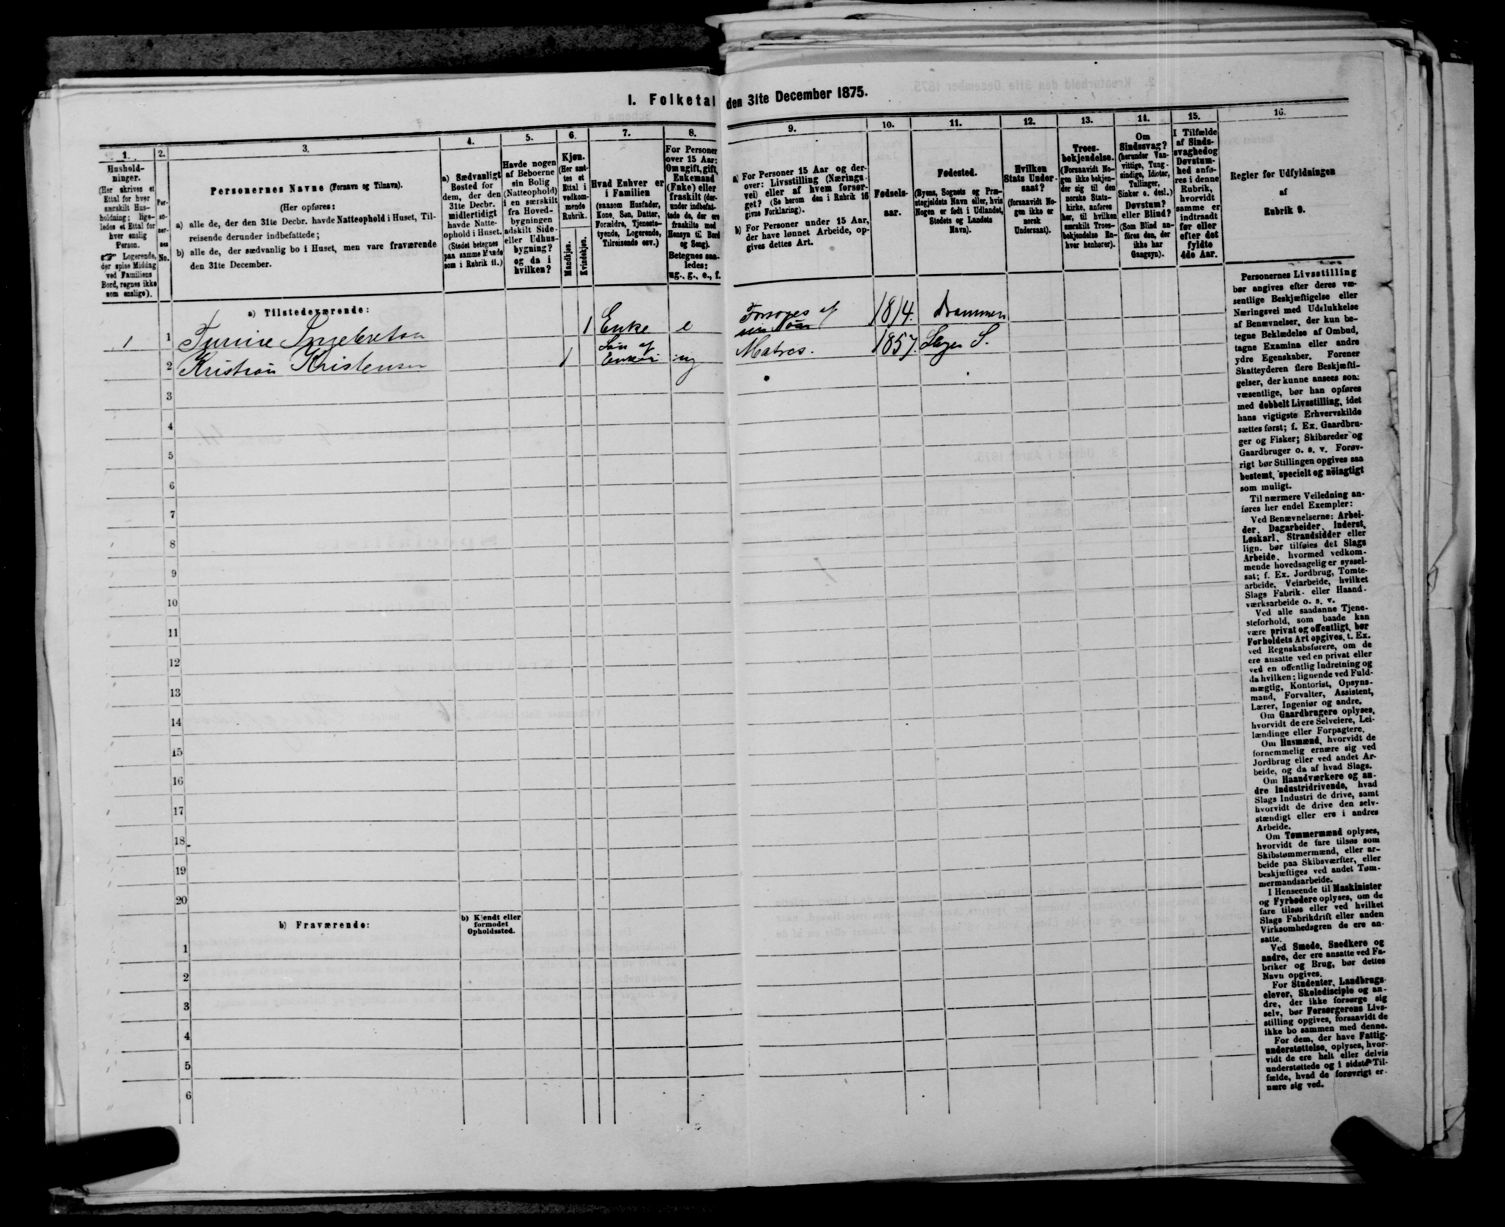 I. Folketal den 31te December 1875.
1.
Hushold-
ninger.
(Her skrives et
Ettal for hver
særskilt Hus-
holdning; lige-
ledes et Ettal for
hver enslig
Person.
☞ Logerende,
der spise Middag
ved Familiens
Bord, regnes ikke
som enslige).
2.
Per-
so-
ner-
nes
No.
3.
Personernes Navne (Fornavn og Tilnavn).
(Her opføres:
a) alle de, der den 31te Decbr. havde Natteophold i Huset, Til-
reisende derunder indbefattede;
b) alle de, der sædvanlig bo i Huset, men vare fraværende
den 31te December.
4.
a) Sædvanligt
Bosted for
dem, der den
31te Decbr.
midlertidigt
havde Natte-
ophold i Huset.
(Stedet betegnes
paa samme Maade
som i Rubrik 11.)
5.
Havde nogen
af Beboerne
sin Bolig
(Natteophold)
i en særskilt
fra Hoved-
bygningen
adskilt Side-
eller Udhus-
bygning?
og da i
hvilken?
6.
Kjøn.
(Her sæt-
tes et
Ettal i
vedkom-
mende
Rubrik.
Mandkjøn.
Kvindekjøn.
7.
Hvad Enhver er
i Familien
(saasom Husfader,
Kone, Søn, Datter,
Forældre, Tjeneste-
tyende, Logerende,
Tilreisende osv.)
8.
For Personer
over 15 Aar:
Om ugift, gift,
Enkemand
(Enke) eller
fraskilt (der-
under indbefat-
tede de, der ere
fraskilte med
Hensyn til Bord
og Seng).
Betegnes saa-
ledes:
ug., g., e., f.
9.
a) For Personer 15 Aar og der-
over: Livsstilling (Nærings-
vei) eller af hvem forsør-
get? (Se herom den i Rubrik 16
givne Forklaring).
b) For Personer under 15 Aar,
der have lønnet Arbeide, op-
gives dettes Art.
10.
Fødsels-
aar.
11.
Fødested.
(Byens, Sognets og Præ-
stegjeldets Navn eller, hvis
Nogen er født i Udlandet,
Stedets og Landets
Navn).
12.
Hvilken
Stats Under-
saat?
(forsaavidt No-
gen ikke er
norsk
Undersaat).
13.
Troes-
bekjendelse.
(Forsaavidt No-
gen ikke bekjen-
der sig til den
norske Stats-
kirke, anføres
her, til hvilken
særskilt Troes-
bekjendelse En-
hver henhører).
14.
Om
Sindssvag?
(herunder Van-
vittige, Tung-
sindige, Idioter,
Tullinger,
Sinker o. desl.)
Døvstum?
eller Blind?
(Som Blind an-
føres den, der
ikke har
Gangsyn).
15.
I Tilfælde
af Sinds-
svaghed og
Døvstum-
hed anfø-
res i denne
Rubrik,
hvorvidt
samme er
indtraadt
før eller
efter det
fyldte
4de Aar.
16.
Regler for Udfyldningen
af
Rubrik 9.
a) Tilstedeværende:
1 1 Ingebretsen 1 Enke e Forsørges af
sin Søn 1814. Drammen
2 Kristian Kristensen 1 Søn af
Enken ug Matros. 1857.
3
4
5
6
7
8
9
10
11
12
13
14
15
16
17
18
19
20
b) Fraværende:
b) Kjendt eller
formodet
Opholdssted.
1
2
3
4
5
6
Personernes Livsstilling
bør angives efter deres væ-
sentlige Beskjæftigelse eller
Næringsvei med Udelukkelse
af Benævnelser, der kun be-
tegne Beklædelse af Ombud,
tagne Examina eller andre
ydre Egenskaber. Forener
Skatteyderen flere Beskjæfti-
gelser, der kunne ansees som
væsentlige, bør han opføres
med dobbelt Livsstilling, idet
hans vigtigste Erhvervskilde
sættes først; f. Ex. Gaardbru-
ger og Fisker; Skibsreder og
Gaardbruger o. s. v. Forøv-
rigt bør Stillingen opgives saa
bestemt, specielt og nöiagtigt
som muligt.
Til nærmere Veiledning an-
føres her endel Exempler:
Ved Benævnelserne: Arbei-
der, Dagarbeider, Inderst,
Løskarl, Strandsidder eller
lign. bør tilføies det Slags
Arbeide, hvormed vedkom-
mende hovedsagelig er syssel-
sat; f. Ex. Jordbrug, Tomte-
arbeide, Veiarbeide, hvilket
Slags Fabrik- eller Haand-
værksarbeide o. s. v.
Ved alle saadanne Tjene-
steforhold, som baade kan
være privat og offentligt, bør
Forholdets Art opgives, t. Ex.
ved Regnskabsførere, om de
ere ansatte ved en privat eller
ved en offentlig Indretning og
da hvilken; lignende ved Fuld-
mægtig, Kontorist, Opsyns-
mand, Forvalter, Assistent,
Lærer, Ingeniør og andre.
Om Gaardbrugere oplyses,
hvorvidt de ere Selveiere, Lei-
lændinge eller Forpagtere.
Om Husmænd, hvorvidt de
fornemmelig ernære sig ved
Jordbrug eller ved andet Ar-
beide, og da af hvad Slags.
Om Haandværkere og an-
dre Industridrivende, hvad
Slags Industri de drive, samt
hvorvidt de drive den selv-
stændigt eller ere i andres
Arbeide.
Om Tømmermænd oplyses,
hvorvidt de fare tilsøs som
Skibstømmermænd, eller ar-
beide paa Skibsværfter, eller
beskjæftiges ved andet Tøm-
mermandsarbeide.
I Henseende til Maskinister
og Fyrbødere oplyses, om de
fare tilsøs eller ved hvilket
Slags Fabrikdrift eller anden
Virksomhedsgren de ere an-
satte.
Ved Smede, Snedkere og
andre, der ere ansatte ved Fa-
briker og Brug, bør dettes
Navn opgives.
For Studenter, Landbrugs-
elever, Skoledisciple og an-
dre, der ikke forsørge sig
selv, bør Forsørgerens Livs-
stilling opgives, forsaavidt de
ikke bo sammen med denne.
For dem, der have Fattig-
understøttelse, oplyses, hvor-
vidt de ere helt eller delvis
understøttede og i sidste Til-
fælde, hvad de forøvrigt er-
nære sig ved.